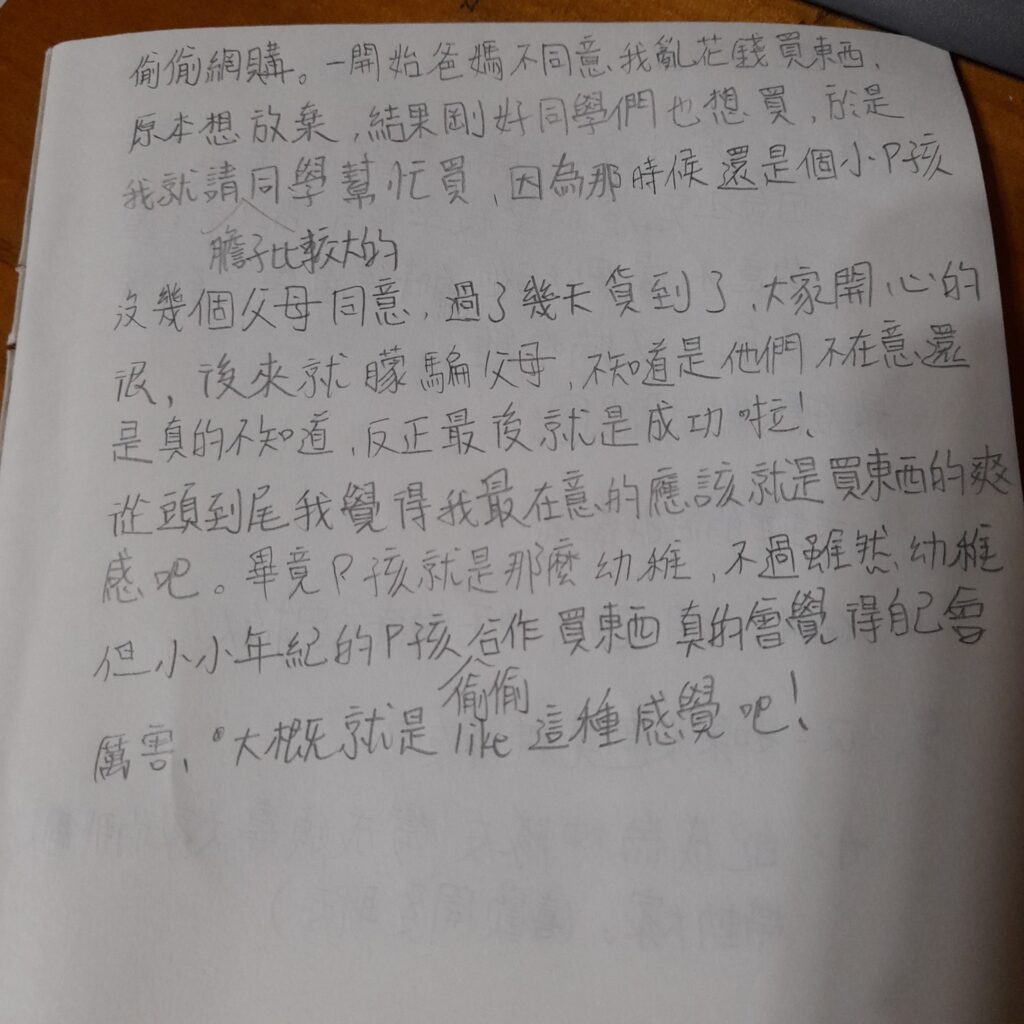 偷偷網購。一開始爸媽不同意我亂花錢買東西，
原本想放棄，結果剛好同學們也想買，於是
我就請同學幫忙買，因為那時候還是個小P孩
膽子比較大的
沒幾個父母同意，過了幾天貨到了，大家開心的
很，後來就矇騙父母，不知道是他們不在意還
是真的不知道，反正最後就是成功啦！
從頭到尾我覺得我最在意的應該就是買東西的爽
感吧。畢竟P孩就是那麼幼稚，不過雖然幼稚
但小小年紀的P孩合作買東西真的會覺得自己會
偷偷
厲害，大概就是like這種感覺吧！